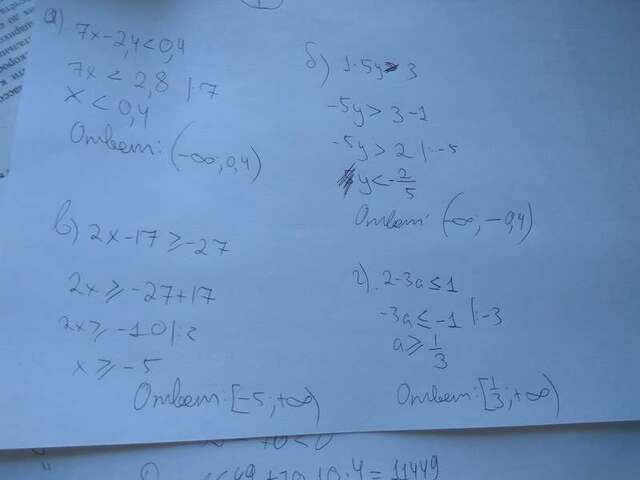 а) 7x-2,4<0,4
7x < 2,8 |:7
x < 0,4
Ответ: (-∞; 0,4)
б) 1-5y > 3
-5y > 3-1
-5y > 2 |:-5
y < -2/5
Ответ: (∞; -0,4)
в) 2x-17 ≥ -27
2x ≥ -27+17
2x ≥ -10 |:2
x ≥ -5
Ответ: [-5; +∞)
г). 2-3a ≤ 1
-3a ≤ -1 |:-3
a ≥ 1/3
Ответ: [1/3; +∞)